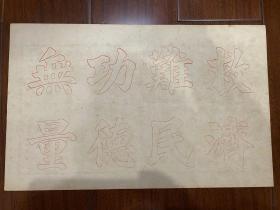 救濟
難民
功德
無量